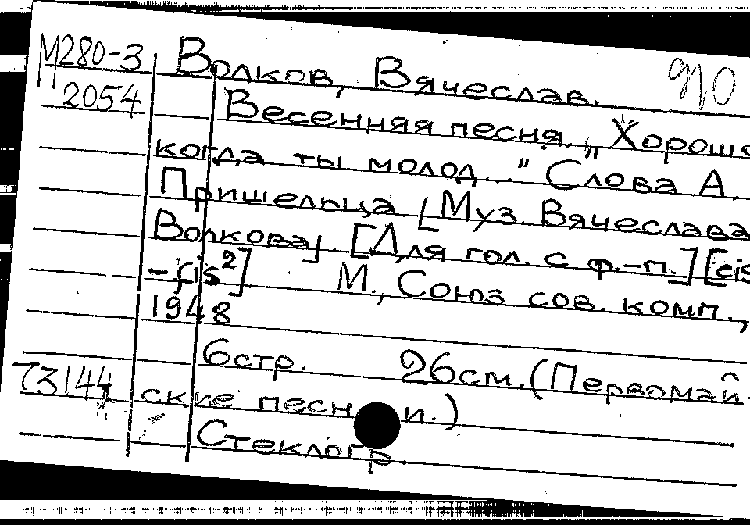 М280-3 Волков, Вячеслав. 910
2054 Весенняя песня. „Хорошо
когда ты молод..." Слова А.
Пришельца [Муз. Вячеслава
Волкова]. [Для гол. с ф.-п.] [cis
-fis²] М., Союз сов. комп.,
1948
6стр. 26см. (Первомай-
73144 ские песни.)
Стеклогр.